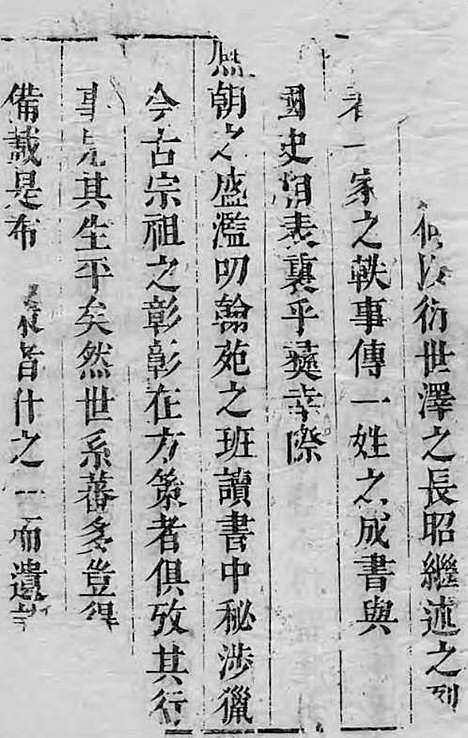 衍世澤之長昭繼述之
一家之軼事傳一姓之成書與
國史相表裏乎彞幸際
熙朝之盛濫叨翰苑之班讀書中秘涉獵
今古宗祖之彰彰在方策者俱攷其行
事見其生平矣然世系蕃多豈得
備載是布 者什之一而遺